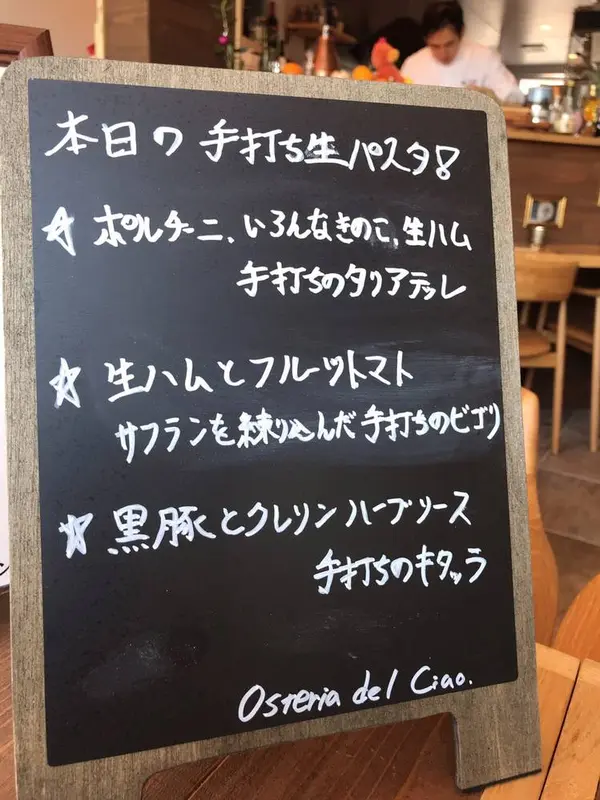 本日の手打ち生パスタ!
☆ ポルチーニ、いろんなきのこ、生ハム
手打ちのタリアテッレ
☆ 生ハムとフルーツトマト
サフランを練り込んだ手打ちのビゴリ
☆ 黒豚とクレソン ハーブソース
手打ちのキタッラ
Osteria del Ciao.